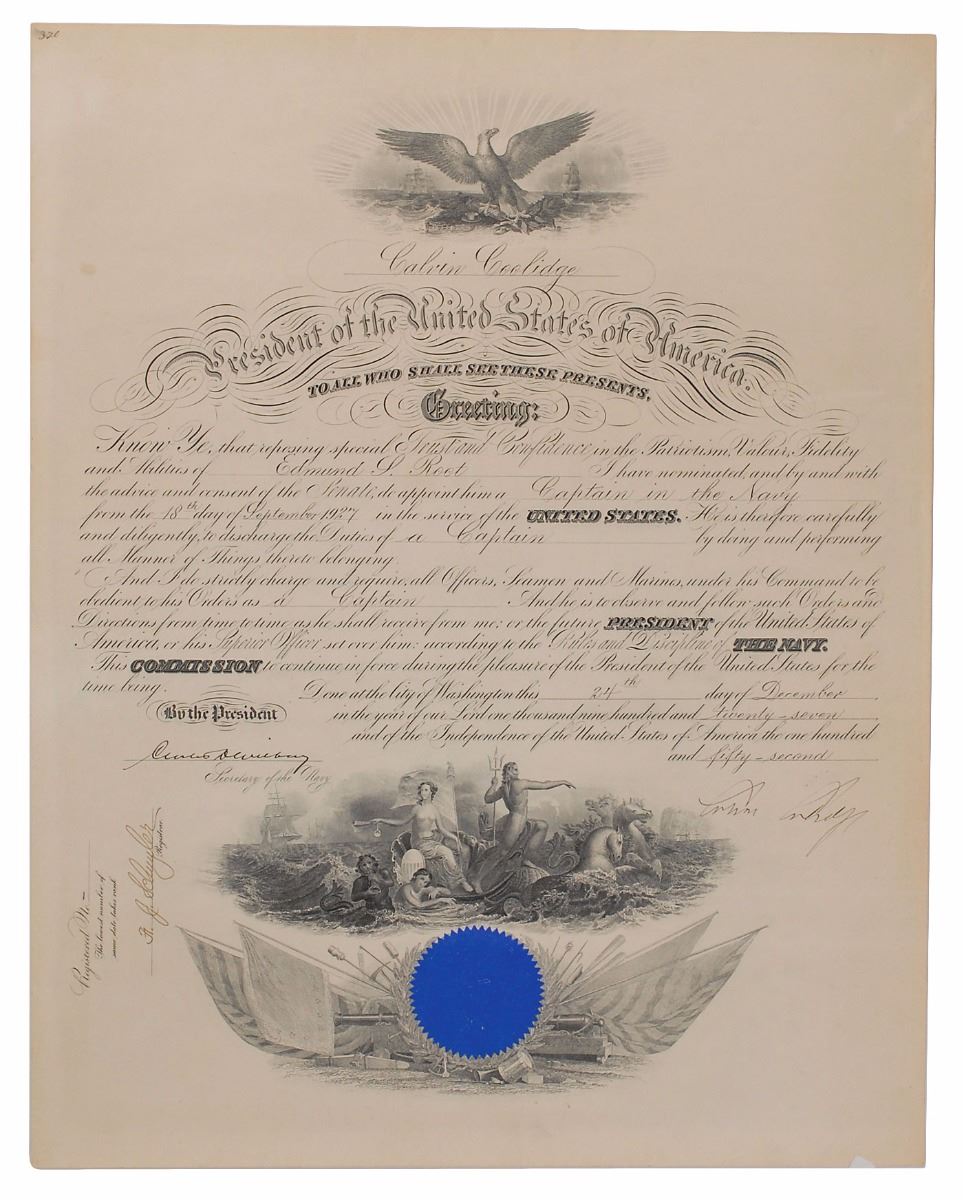 320
Calvin Coolidge
President of the United States of America.
TO ALL WHO SHALL SEE THESE PRESENTS,
Greeting:
Know Ye, that reposing special Trust and Confidence in the Patriotism, Valour, Fidelity
and Abilities of Edmund S. Root I have nominated, and by and with
the advice and consent of the Senate, do appoint him a Captain in the Navy
from the 18th day of September 1927 in the service of the UNITED STATES. He is therefore carefully
and diligently, to discharge the Duties of a Captain by doing and performing
all Manner of Things thereto belonging.
And I do strictly charge and require, all Officers, Seamen and Marines, under his Command to be
obedient to his Orders as a Captain And he is to observe and follow such Orders and
Directions from time to time as he shall receive from me; or the future PRESIDENT of the United States of
America, or his Superior Officer set over him; according to the Rules and Discipline of THE NAVY.
This COMMISSION to continue in force during the pleasure of the President of the United States for the
time being.
Done at the City of Washington this 24th day of December
By the President
in the year of our Lord one thousand nine hundred and twenty-seven
and of the Independence of the United States of America the one hundred
and fifty-second
Secretary of the Navy
Calvin Coolidge
Registered No
The lowest number of
same date takes rank
Schuyler
Registrar